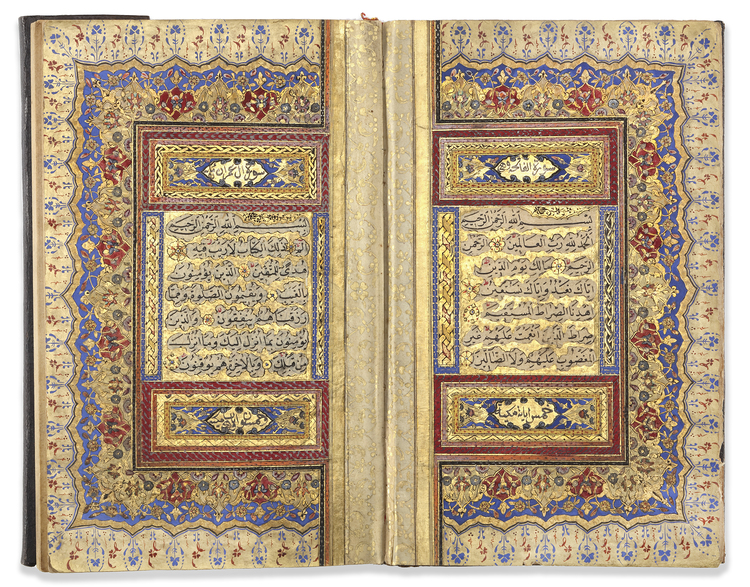 سورة الفاتحة
بِسْمِ اللهِ الرَّحْمٰنِ الرَّحِيمِ
اَلْحَمْدُ لِلّٰهِ رَبِّ الْعَالَمِينَ الرَّحْمٰنِ
الرَّحِيمِ مَالِكِ يَوْمِ الدِّينِ
اِيَّاكَ نَعْبُدُ وَاِيَّاكَ نَسْتَعِينُ
اِهْدِنَا الصِّرَاطَ الْمُسْتَقِيمَ
صِرَاطَ الَّذِينَ اَنْعَمْتَ عَلَيْهِمْ غَيْرِ
الْمَغْضُوبِ عَلَيْهِمْ وَلَا الضَّالِّينَ
خمس ايات مكية
سورة ال عمران
بِسْمِ اللهِ الرَّحْمٰنِ الرَّحِيمِ
الم ذٰلِكَ الْكِتَابُ لَا رَيْبَ فِيهِ
هُدًى لِلْمُتَّقِينَ الَّذِينَ يُؤْمِنُونَ
بِالْغَيْبِ وَيُقِيمُونَ الصَّلٰوةَ وَمِمَّا
رَزَقْنَاهُمْ يُنْفِقُونَ وَالَّذِينَ
يُؤْمِنُونَ بِمَا اُنْزِلَ اِلَيْكَ وَمَا اُنْزِلَ
مِنْ قَبْلِكَ وَبِالْاٰخِرَةِ هُمْ يُوقِنُونَ